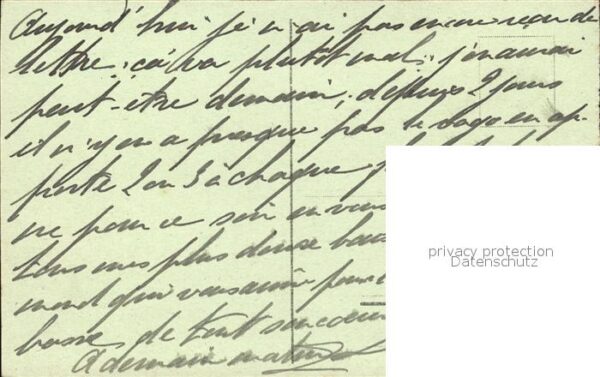 Aujourd'hui je n'ai pas encore reçu de
lettre, ça va plutôt mal, j'en aurai
peut-être demain, depuis 2 jours
il n'y en a presque pas le vago en ap-
porte 2 ou 3 à chaque
ne pour ce soir en vous
tous mes plus doux bais
mond qui vous aime pour
basse de tout son coeur
A demain matin
privacy protection
Datenschutz